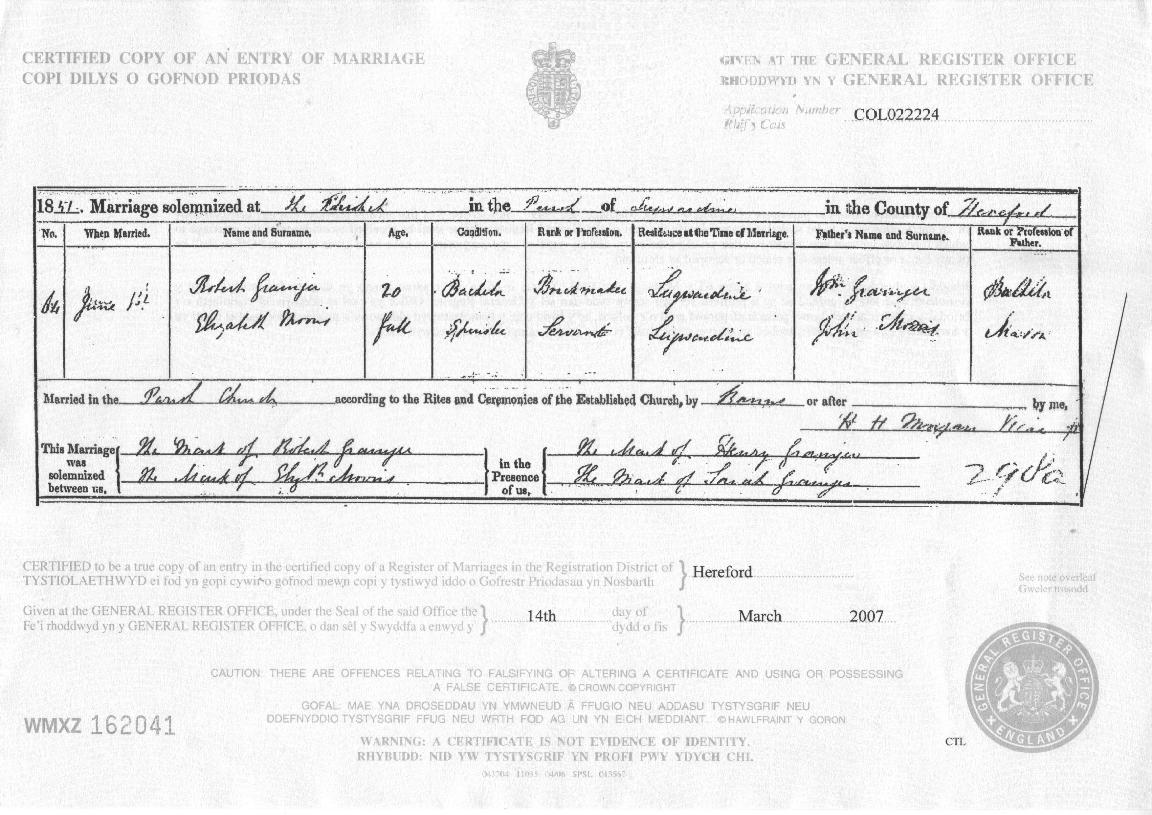 CERTIFIED COPY OF AN ENTRY OF MARRIAGE
COPI DILYS O GOFNOD PRIODAS
GIVEN AT THE GENERAL REGISTER OFFICE
RHODDWYD YN Y GENERAL REGISTER OFFICE
Application Number COL022224
Rhif y Cais
1851. Marriage solemnized at the Church in the Parish of Lugwardine in the County of Hereford
No. When Married. Name and Surname. Age, Condition. Rank or Profession. Residence at the Time of Marriage. Father's Name and Surname. Rank or Profession of Father.
64 June 1st Robert Grainger 20 Bachelor Brickmaker Lugwardine John Grainger
Elizabeth Morris full Spinster Servant Lugwardine John Morris Mason
Married in the Parish Church according to the Rites and Ceremonies of the Established Church, by Banns or after by me,
H H Morgan Vicar
This Marriage was solemnized between us, The Mark of Robert Grainger in the Presence of us, The Mark of Henry Grainger
The Mark of Elizth Morris The Mark of Sarah Grainger
298a
CERTIFIED to be a true copy of an entry in the certified copy of a Register of Marriages in the Registration District of Hereford
TYSTIOLAETHWYD ei fod yn gopi cywir o gofnod mewn copi y tystiwyd iddo o Gofrestr Priodasau yn Nosbarth
See note overleaf
Gweler trosodd
Given at the GENERAL REGISTER OFFICE, under the Seal of the said Office the 14th day of March 2007
Fe'i rhoddwyd yn y GENERAL REGISTER OFFICE, o dan sêl y Swyddfa a enwyd y dydd o fis
CAUTION: THERE ARE OFFENCES RELATING TO FALSIFYING OF ALTERING A CERTIFICATE AND USING OR POSSESSING
A FALSE CERTIFICATE. © CROWN COPYRIGHT
GOFAL: MAE YNA DROSEDDAU YN YMWNEUD Â FFUGIO NEU ADDASU TYSTYSGRIF NEU
DDEFNYDDIO TYSTYSGRIF FFUG NEU WRTH FOD AG UN YN EICH MEDDIANT. © HAWLFRAINT Y GORON
WARNING: A CERTIFICATE IS NOT EVIDENCE OF IDENTITY.
RHYBUDD: NID YW TYSTYSGRIF YN PROFI PWY YDYCH CHI.
WMXZ 162041
CTL
GENERAL REGISTER OFFICE
ENGLAND